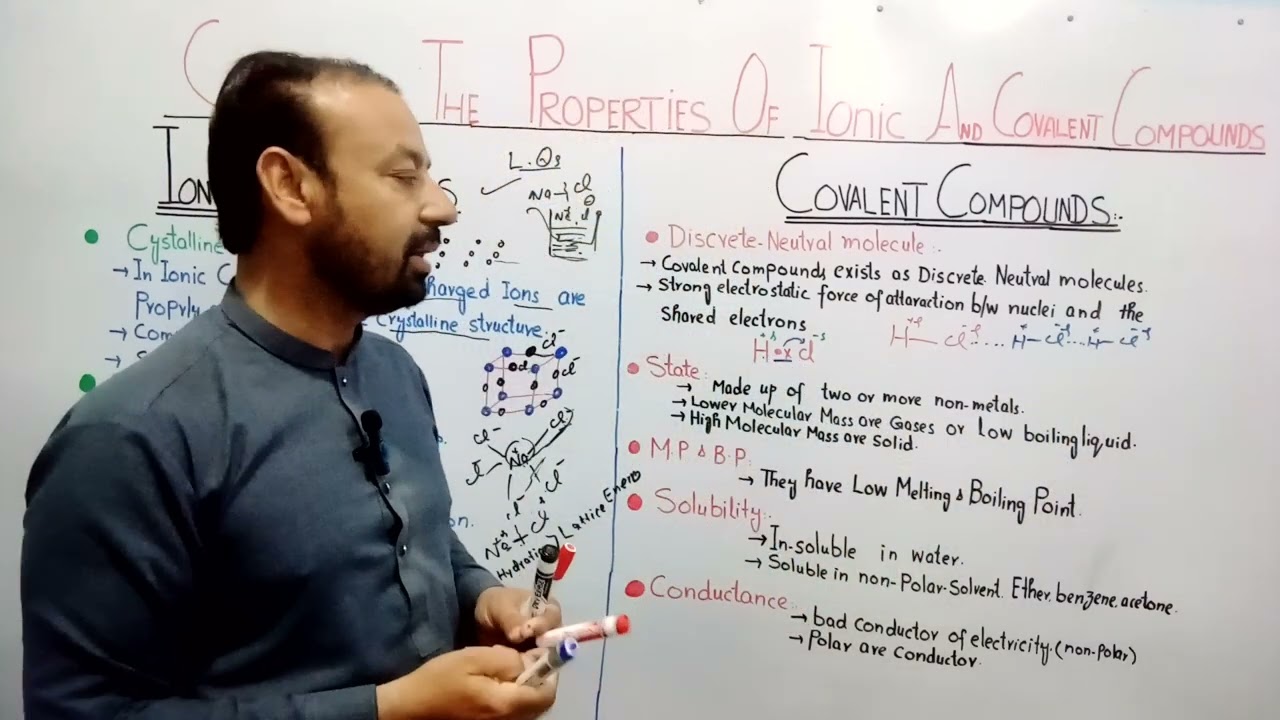 C THE PROPERTIES OF IONIC AND COVALENT COMPOUNDS
ION S.
L.Qs
Na Cl
Cystalline
→ In Ionic C harged Ions are
Proprly Crystalline structure:
→ Com
→ S
Cl⁻
Cl⁻
Cl⁻
Na
Cl⁻
Lattice Ener
Hydratio
on.
COVALENT COMPOUNDS:.
Discrete-Neutral molecule:.
→ Covalent Compounds exists as Discrete Neutral molecules.
→ Strong electrostatic force of attaraction b/w nuclei and the
Shared electrons
H Cl
H — Cl ..... H – Cl ... H – Cl
State:
→ Made up of two or more non-metals.
→ Lower Molecular Mass are Gases or Low boiling liquid.
→ High Molecular Mass are Solid.
M.P & B.P:
→ They have Low Melting & Boiling Point.
Solubility:.
→ In-soluble in water.
→ Soluble in non-Polar-Solvent. Ether, benzene, acetone.
Conductance:.
→ bad conductor of electricity. (non-polar)
→ Polar are Conductor.